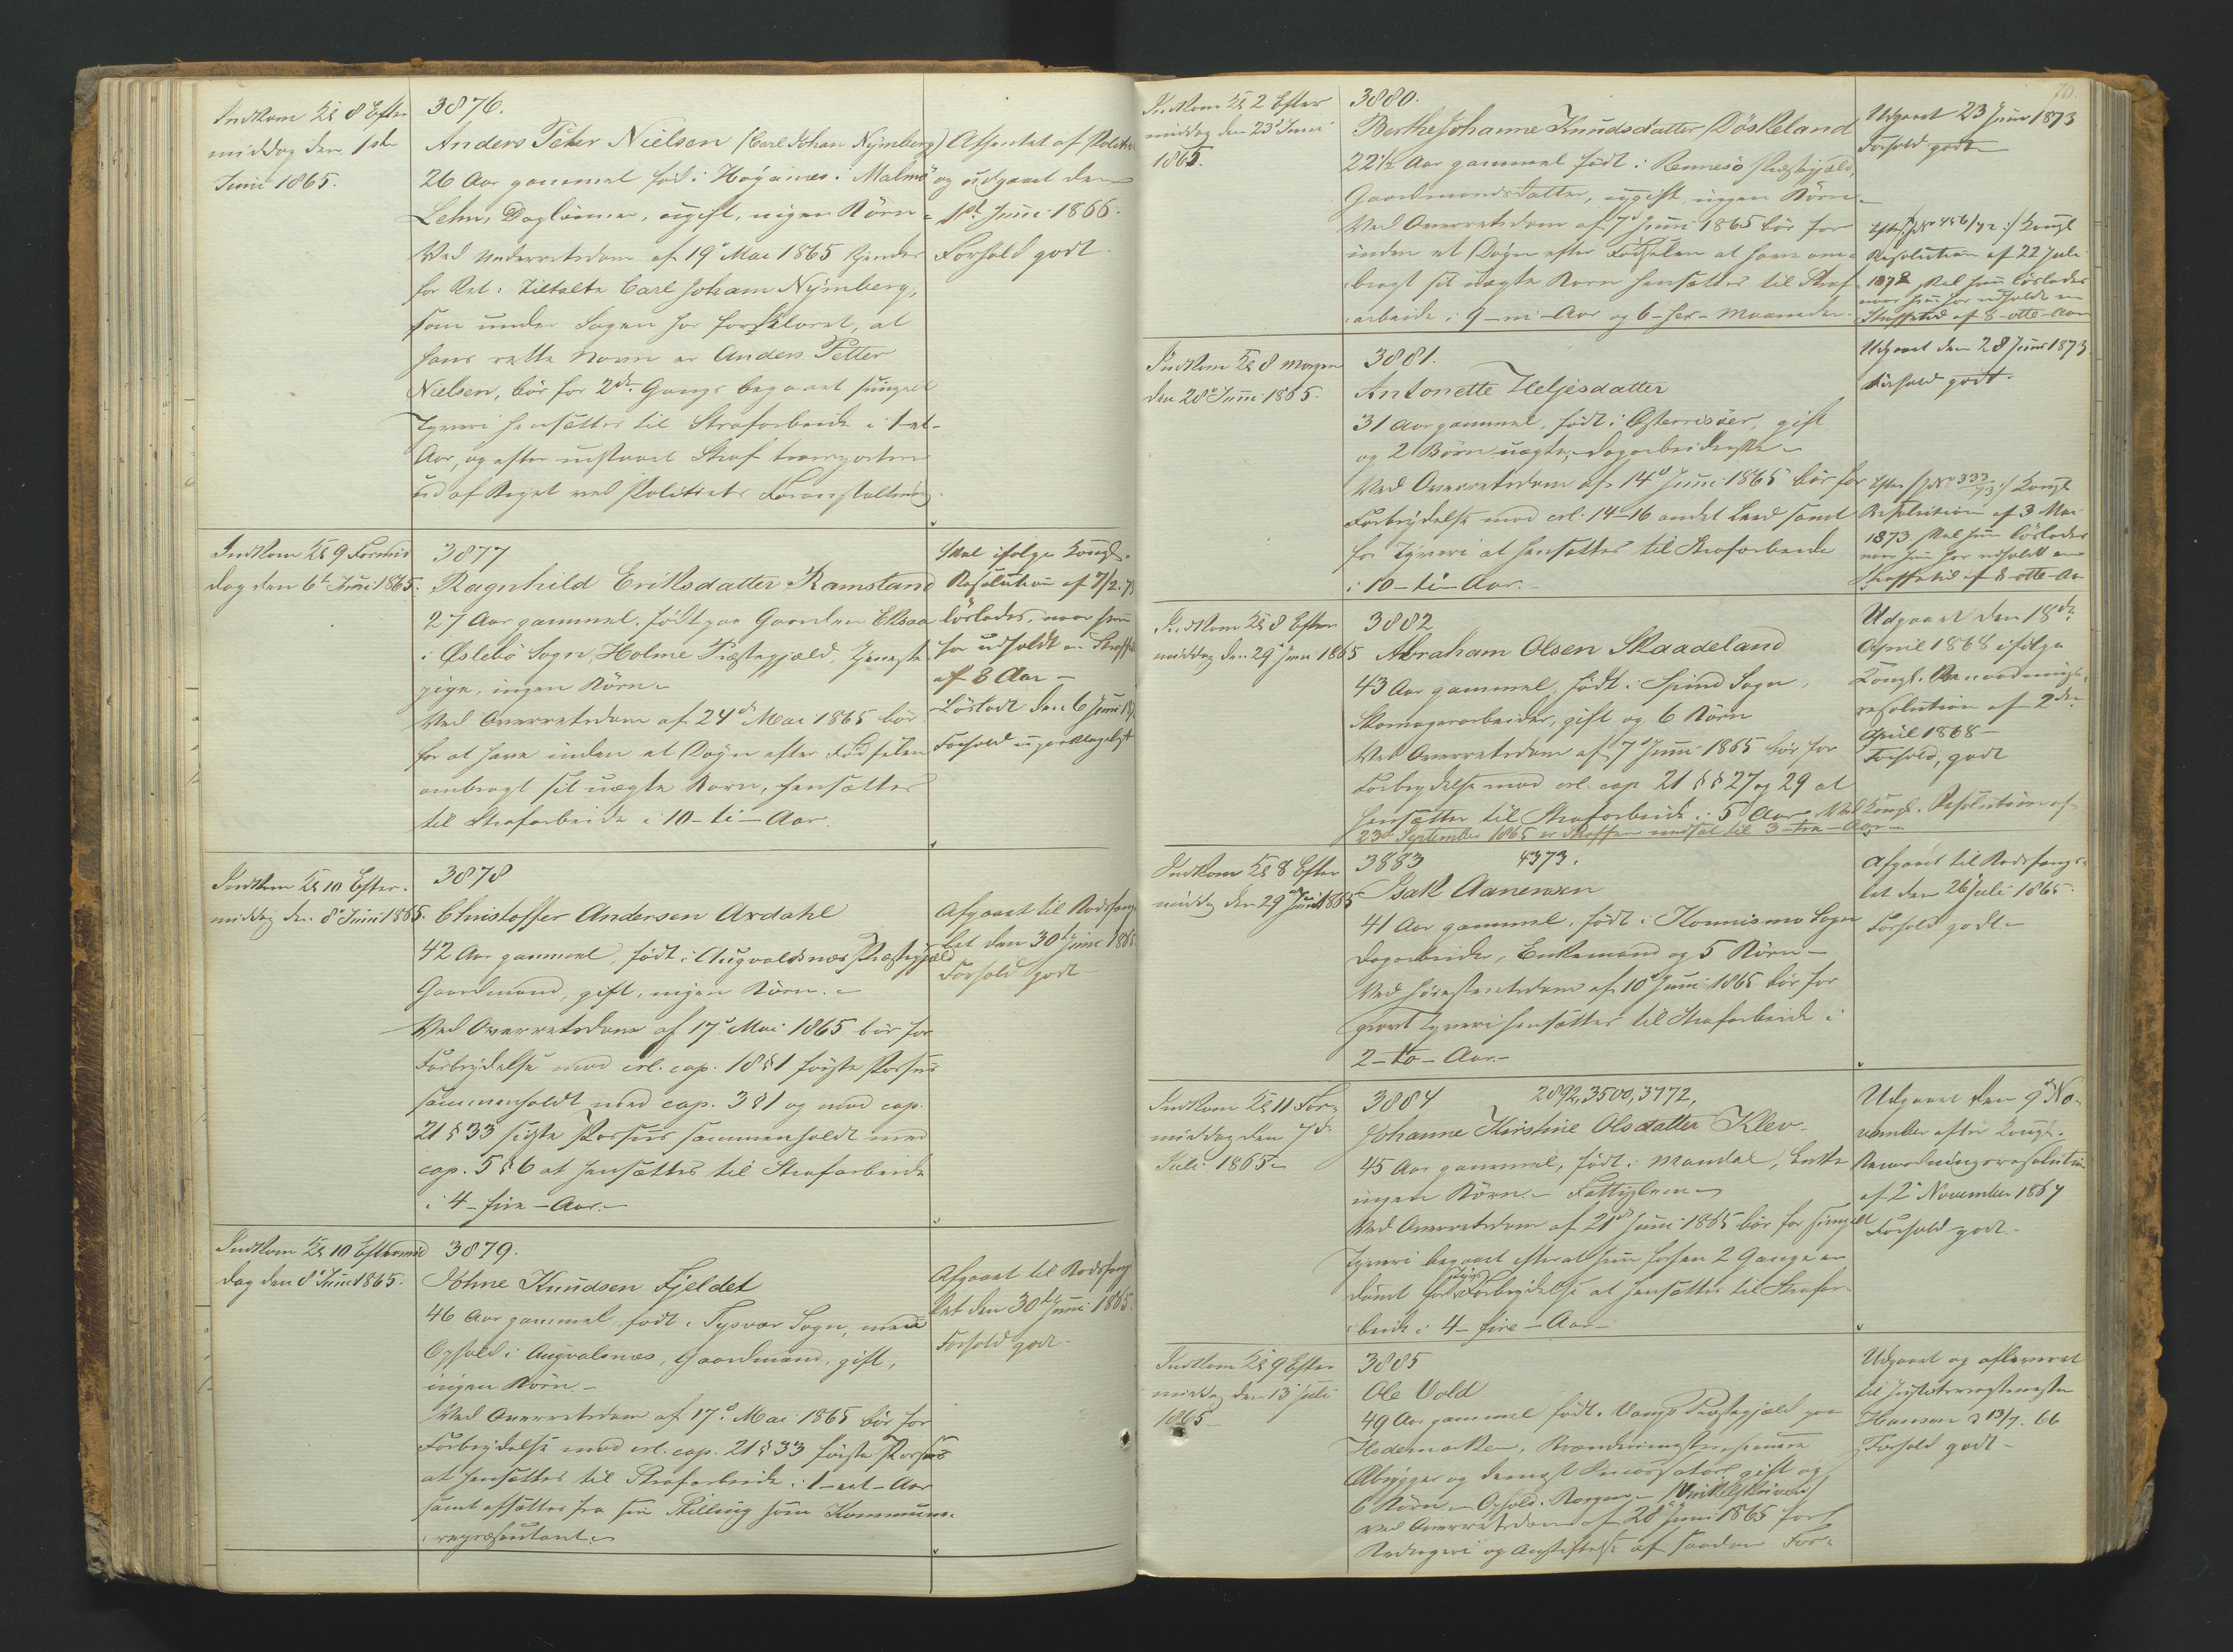 Indkom Kl 8 Efter
middag den 1ste
Juni 1865.
3876.
Anders Peter Nielsen (Carl Johan Nymberg)
26 Aar gammel fød i Höganæs i Malmö
Lehn, Daglønner, ugift, ingen Börn.
Ved Underretsdom af 19de Mai 1865 kjendes
for Ret: Tiltalte Carl Johan Nymberg,
som under Sagen har forklaret, at
hans rette Navn er Anders Petter
Nielsen, bör for 2den Gang begaaet simpelt
Tyveri hensættes til Strafarbeide i 1-et-
Aar, og efter udstaaet Straf transporteres
ud af Riget ved Politiets Foranstaltning.
Afhentet af Politiet
og udgaaet den
1ste Juni 1866.
Forhold godt.
Indkom Kl 9 Formid
dag den 6te Juni 1865.
3877
Ragnhild Eriksdatter Ramsland
27 Aar gammel, født paa Gaarden Eksaa
i Øslebö Sogn, Holme Præstegjæld, Tjeneste
pige, ingen Börn.
Ved Overretsdom af 24de Mai 1865 bör
for at have inden et Døgn efter Fødselen
ombragt sit uægte Barn, hensættes
til Strafarbeide i 10-ti-Aar.
Skal ifølge Kongl.
Resolution af 7/2 73
løslades, naar hun
har udholdt en Straffetid
af 8 Aar –
Løsladt den 6 Juni 187
Forhold upaaklageligt
Indkom Kl 10 Efter-
middag den 8de Juni 1865.
3878
Christoffer Andersen Ardahl
42 Aar gammel, født i Augvaldsnæs Præstegjæld
Gaardmand, gift, ingen Börn.
Ved Overretsdom af 17de Mai 1865 bör for
Forbrydelse mod crl. cap. 18 § 1 første Passus
sammenholdt med cap. 3 § 1 og mod cap.
21 § 33 sidste Passus sammenholdt med
cap. 5 § 6 at hensættes til Strafarbeide
i 4-fire-Aar.
Afgaaet til Bodsfæng
let den 30te Juni 1865.
Forhold godt
Indkom Kl 10 Eftermid
dag den 8de Juni 1865.
3879.
Johne Knudsen Fjeldet
46 Aar gammel født i Tysvær Sogn, med
Ophold i Augvalsnæs, Gaardmand, gift,
ingen Börn.
Ved Overretsdom af 17de Mai 1865 bör for
Forbrydelse mod crl. cap. 21 § 33 første Passus
at hensættes til Strafarbeide i 1-et-Aar
samt afsættes fra sin Stilling som Kommune-
repræsentant.
Afgaaet til Bodsfæng
let den 30te Juni 1865.
Forhold godt
70.
Indkom Kl 2 Efter
middag den 23de Juni
1865.
3880.
Berthe Johanne Knudsdatter Döskeland
22½ Aar gammel født i Rennesö Præstegjæld,
Gaardmandsdatter, ugift ingen Börn.
Ved Overretsdom af 7de Juni 1865 bör for
inden et Døgn efter Fødselen at have om-
bragt sit uægte Barn hensættes til Straf
arbeide i 9-ni-Aar og 6-sex-Maaneder.
Udgaaet 23 Juni 1873
Forhold godt
Efter (: No 456/72 :) Kongl
Resolution af 22 Juli
1872 skal hun løslades
naar hun har udholdt en
Straffetid af 8-otte-Aar
Indkom Kl 8 Morgen
den 28de Juni 1865.
3881.
Antonette Heljesdatter
31 Aar gammel, født i Østerrisøer, gift
og 2 Börn uægte, Dagarbeiderske.
Ved Overretsdom af 14de Juni 1865 bör for
Forbrydelse mod crl. 14-16 andet Leed samt
for Tyveri at hensættes til Strafarbeide
i 10-ti-Aar.
Udgaaet den 28 Juni 1873
Forhold godt.
Efter (: No 333/73 :) Kongl
Resolution af 3 Mai
1873 skal hun løslades
naar hun har udholdt en
Straffetid af 8-otte-Aar
Indkom Kl 8 Efter
middag den 29de Juni 1865
3882
Abraham Olsen Skaadeland
43 Aar gammel, født i Spind Sogn,
Skomagerarbeider, gift og 6 Börn
Ved Overretsdom af 7de Juni 1865 bör for
Forbrydelse mod crl. cap 21 § § 27 og 29 at
hensættes til Strafarbeide i 5 Aar. Ved Kongl. Resolution af
23de September 1865 er Straffen nedsat til 3-tre-Aar
Udgaaet den 18de
April 1868 ifølge
Kongl. Benaadnings-
resolution af 2den
April 1868
Forhold, godt
Indkom Kl 8 Efter
middag den 29de Juni 1865
3883 4373.
Isak Aanensen
41 Aar gammel, født i Konnismo Sogn
Dagarbeider, Enkemand og 5 Börn –
Ved Høiesteretsdom af 10de Juni 1865 bör for
grovt Tyveri hensættes til Strafarbeide i
2-to-Aar.
Afgaaet til Bodsfængs-
let den 26 Juli 1865.
Forhold godt.
Indkom Kl 11 For-
middag den 7de
Juli 1865.
3884 2892, 3500, 3772,
Johanne Kirstine Olsdatter Klev.
45 Aar gammel, født i Mandal, Enke
ingen Börn. Fattiglem.
Ved Overretsdom af 21de Juni 1865 bör for simpelt
Tyveri begaaet efterat hun forhen 2 Gange er
dømt for Forbrydelse at hensættes til Strafar-
beide i 4-fire-Aar
Udgaaet den 9de No-
vember efter Kongl.
Benaadningsresolution
af 2de November 1867
Forhold godt.
Indkom Kl 9 Efter
middag den 13de Juli
1865
3885
Ole Vold
49 Aar gammel født i Vangs Præstegjæld paa
Hedemarken,
gift og
6 Börn. Ophold: Bergen. (Vinkelskriver)
ved Overretsdom af 28de Juni 1865 for
Bedrageri og Anstiftelse af saadan For-
Udgaaet og afleveret
til
Hansen d 13/7. 66
Forhold godt